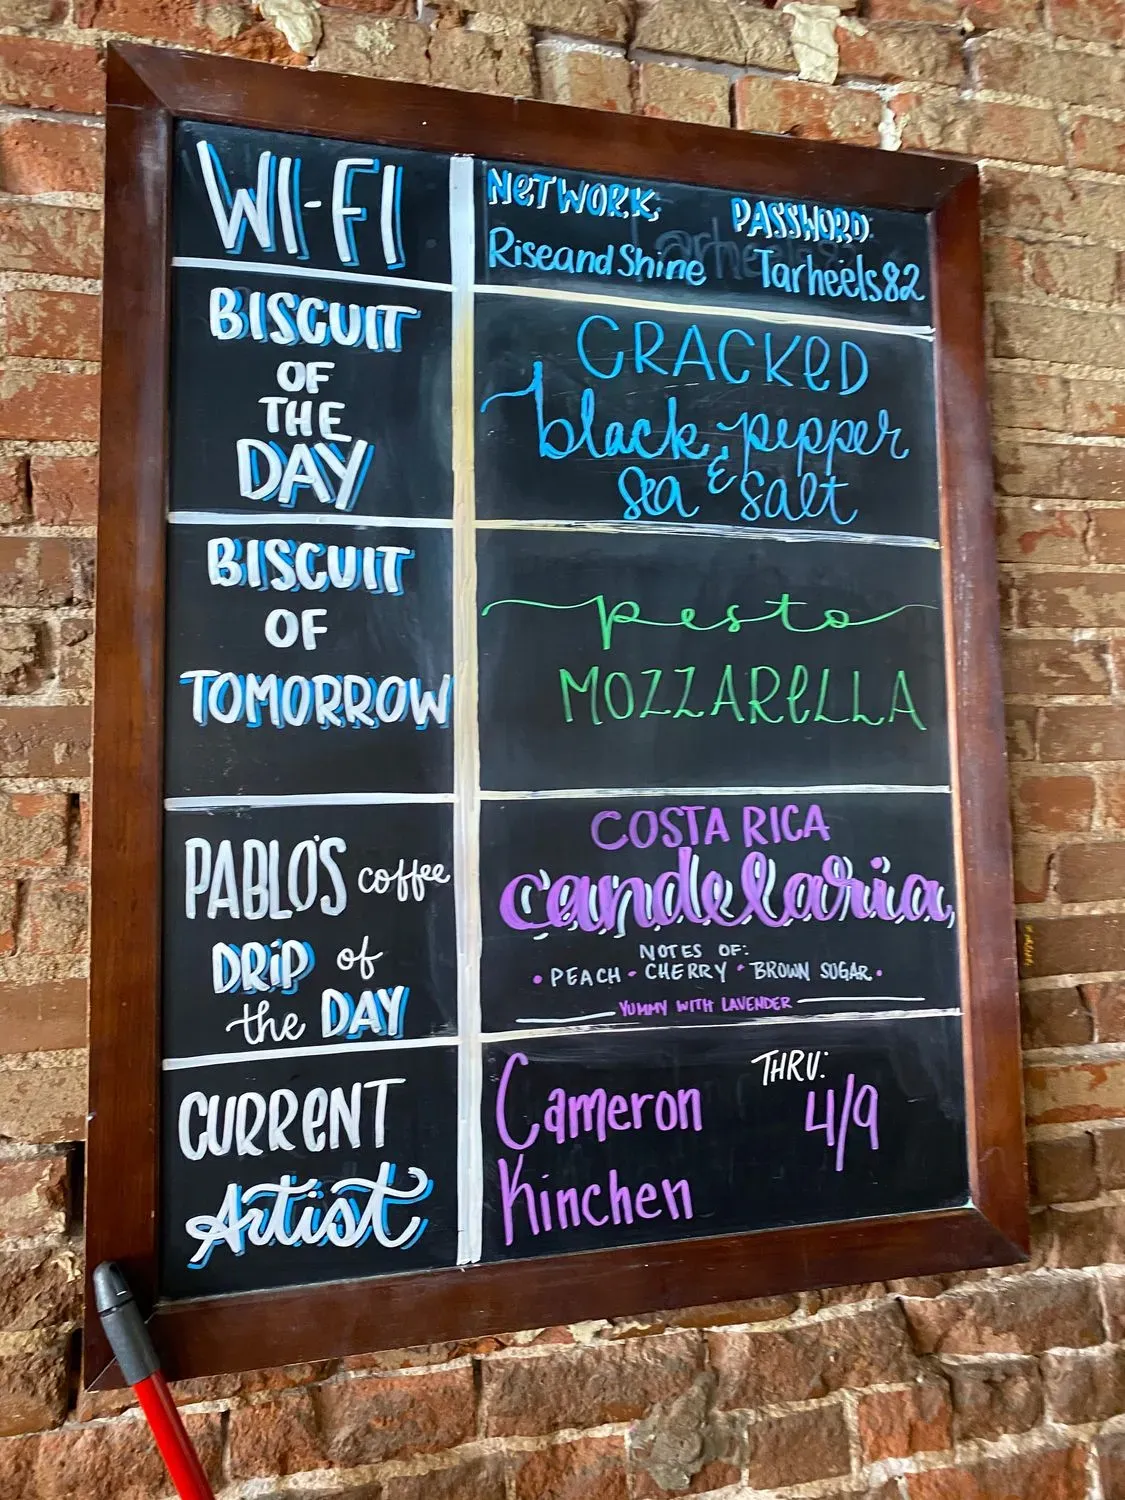 WI-FI
NETWORK: PASSWORD:
RiseandShine Tarheels82
BISCUIT
OF
THE
DAY
CRACKED
black pepper
& 
sea salt
BISCUIT
OF
TOMORROW
pesto
MOZZARELLA
PABLO'S coffee
DRIP of
the DAY
COSTA RICA
candelaria,
NOTES OF:
• PEACH • CHERRY • BROWN SUGAR •
YUMMY WITH LAVENDER
CURRENT
Artist
Cameron
Kinchen
THRU:
4/9